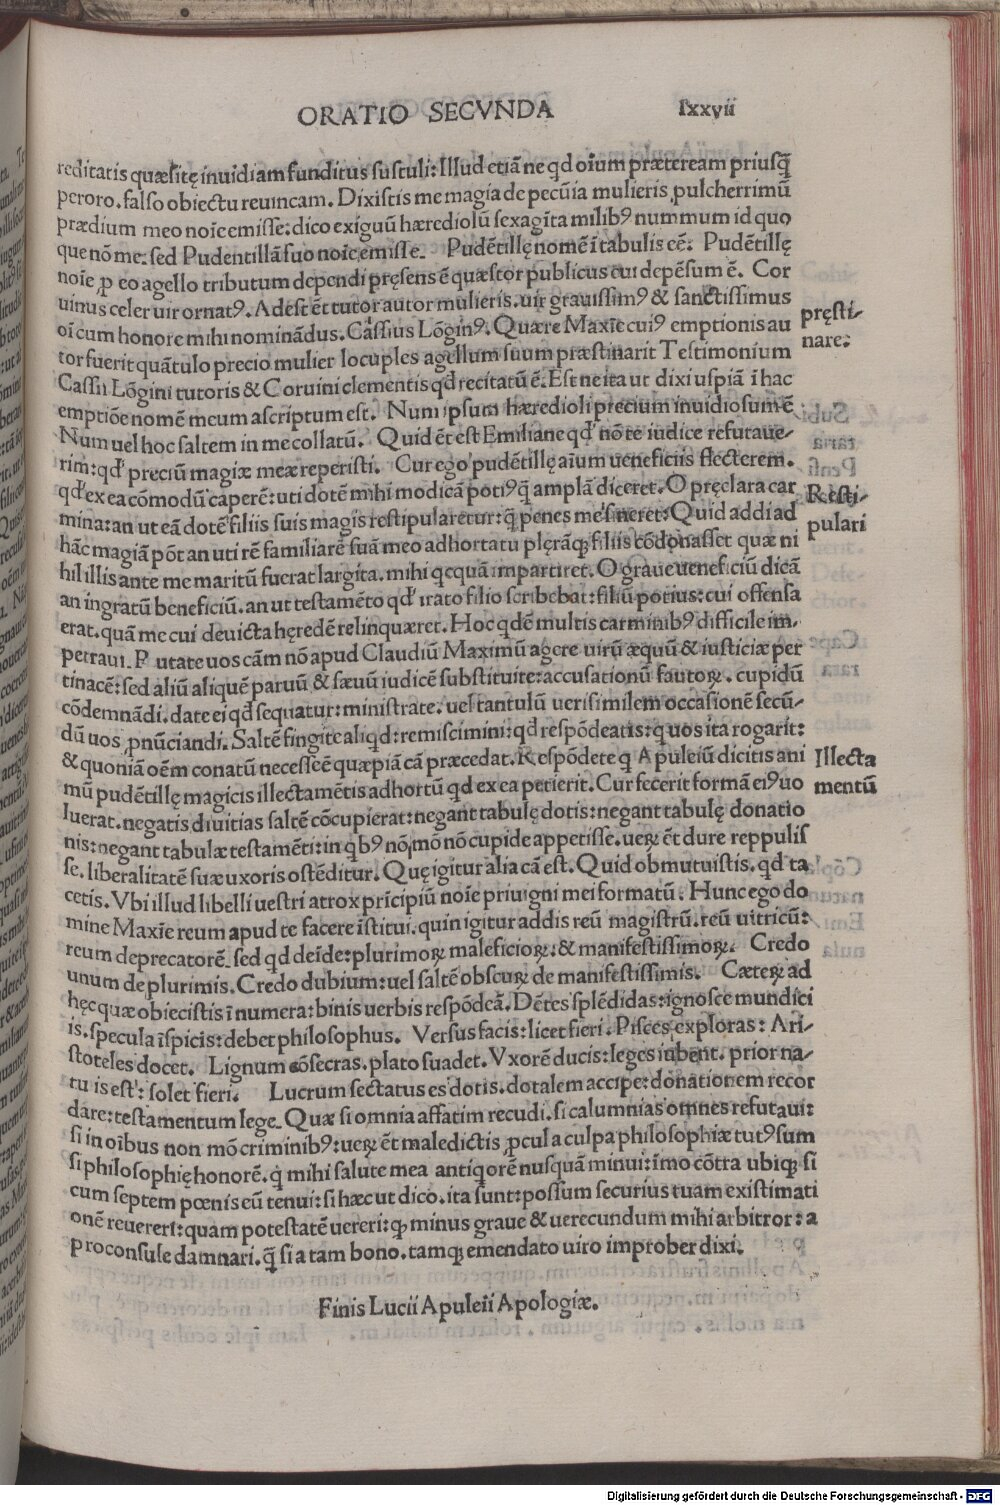 ORATIO SECVNDA lxxvii
reditatis quæsitę inuidiam funditus sustuli: Illud etiã ne qd oĩum præteream priusq̃
peroro. falso obiectu reuincam. Dixistis me magia de pecũia mulieris pulcherrimũ
prædium meo noĩe emisse: dico exiguũ hærediolũ sexagĩta milibꝰ nummum id quo
que nõ me: sed Pudentillã suo noĩe emisse. Pudẽtillę nomẽ ĩ tabulis cẽ. Pudẽtillę
noĩe ꝓ eo agello tributum dependi pręsens ẽ quæstor publicus cui depẽsum ẽ. Cor
uinus celer uir ornatꝰ. Adest ẽt tutor autor mulieris. uir grauissimꝰ & sanctissimus
oĩ cum honore mihi nominãdus. Cassius Lõginꝰ. Quære Maxĩe cuiꝰ emptionis au
tor fuerit quãtulo precio mulier locuples agellum suum præstinarit Testimonium
Cassii Lõgini tutoris & Coruini clementis qd recitatũ ẽ. Est ne ita ut dixi uspiã ĩ hac
emptiõe nomẽ meum ascriptum est. Num ipsum hæredioli precium inuidiosum ẽ
Num uel hoc saltem in me collatũ. Quid ẽt est Emiliane qd nõ te iudice refutaue-
rim: qd preciũ magiæ meæ reperisti. Cur ego pudẽtillę aĩum ueneficiis flecterem.
qd ex ea cõmodũ caperẽ: uti dotẽ mihi modicã potiꝰq̃ amplã diceret. O pręclara car
mina: an ut eã dotẽ filiis suis magis restipularetur: q̃ penes me sineret: Quid addi ad
hãc magiã põt an uti rẽ familiarẽ suã meo adhortatu plęrãq; filiis cõdonasset quæ ni
hil illis ante me maritũ fuerat largita. mihi qcquã impartiret. O graue ueneficiũ dicã
an ingratũ beneficiũ. an ut testamẽto qd irato filio scribebat: filiũ potius: cui offensa
erat. quã me cui deuicta hęredẽ relinquæret. Hoc qdẽ multis carminibꝰ difficile im-
petraui. Putate uos cãm nõ apud Claudiũ Maximũ agere uirũ æquũ & iusticiæ per
tinacẽ: sed aliũ aliquẽ paruũ & sæuũ iudicẽ substituite: accusationũ fautoꝝ. cupidũ
cõdemnãdi. date ei qd sequatur: ministrate. uel tantulũ uerisimilem occasionẽ secũ-
dũ uos ꝓnũciandi. Saltẽ fingite aliqd: remiscimini: qd respõdeatis: q uos ita rogarit:
& quoniã oẽm conatũ necesse ẽ quæpiã cã præcedat. Respõdete q Apuleiũ dicitis ani
mũ pudẽtillę magicis illectamẽtis adhortũ qd ex ea petierit. Cur fecerit formã eiꝰ uo
luerat. negatis diuitias saltẽ cõcupierat: negant tabulę dotis: negant tabulę donatio
nis: negant tabulæ testamẽti: in qbꝰ nõ mõ nõ cupide appetisse. ueꝝ ẽt dure reppulis
se. liberalitatẽ suæ uxoris ostẽditur. Quę igitur alia cã est. Quid obmutuistis. qd ta
cetis. Vbi illud libelli uestri atrox prĩcipiũ noĩe priuigni mei formatũ. Hunc ego do
mine Maxĩe reum apud te facere ĩstitui. quin igitur addis reũ magistrũ. reũ uitricũ:
reum deprecatorẽ. sed qd deĩde: plurimoꝝ maleficioꝝ: & manifestissimoꝝ. Credo
unum de plurimis. Credo dubium: uel saltẽ obscuꝝ de manifestissimis. Cæteꝝ ad
hęc quæ obiecistis ĩ numera: binis uerbis respõdeã. Dẽtes splẽdidas: ignosce mundici
is. specula ĩspicis: debet philosophus. Versus facis: licet fieri. Pisces exploras: Ari-
stoteles docet. Lignum cõsecras. plato suadet. Vxorẽ ducis: leges iubent. prior na-
tu is est: solet fieri. Lucrum sectatus es dotis. dotalem accipe: donationem recor
dare: testamentum lege. Quæ si omnia affatim recudi. si calumnias omnes refutaui:
si in oĩbus non mõ criminibꝰ: ueꝝ ẽt maledictis ꝓcul a culpa philosophiæ tutꝰ sum
si philosophię honorẽ. q̃ mihi salute mea antiqorẽ nusquã minui: ĩmo cõtra ubiq; si
cum septem pœnis eũ tenui: si hæc ut dico. ita sunt: possum securius tuam existimati
onẽ reuereri: quam potestatẽ uereri: ꝙ minus graue & uerecundum mihi arbitror: a
proconsule damnari. q̃ si a tam bono. tamq; emendato uiro improber dixi.
Finis Lucii Apuleii Apologiæ.
pręsti-
nare:
Resti-
pulari
Illecta
mentũ
Digitalisierung gefördert durch die Deutsche Forschungsgemeinschaft - DFG